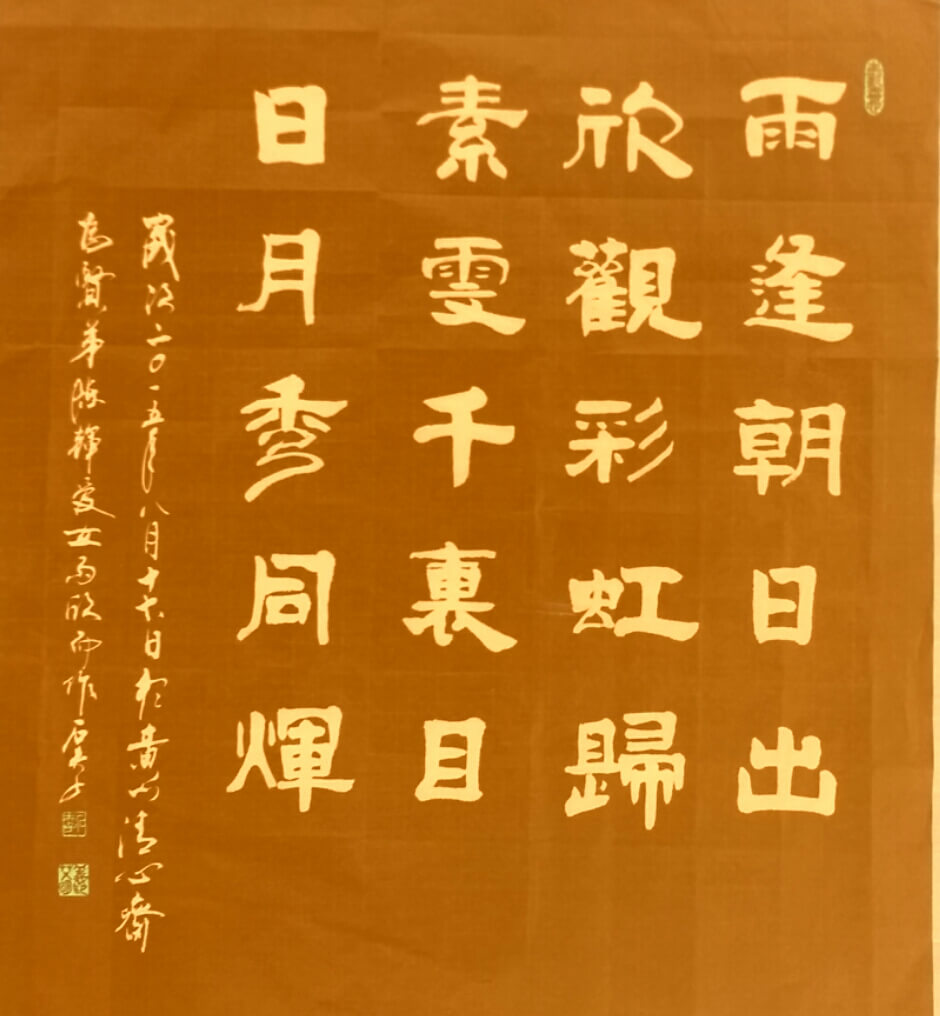 雨逢朝日出
欣觀彩虹歸
素雯千裏目
日月秀同煇
歲次二〇一五年八月十日於黄州清心齋
为賢弟陈輝爱女雨欣而作